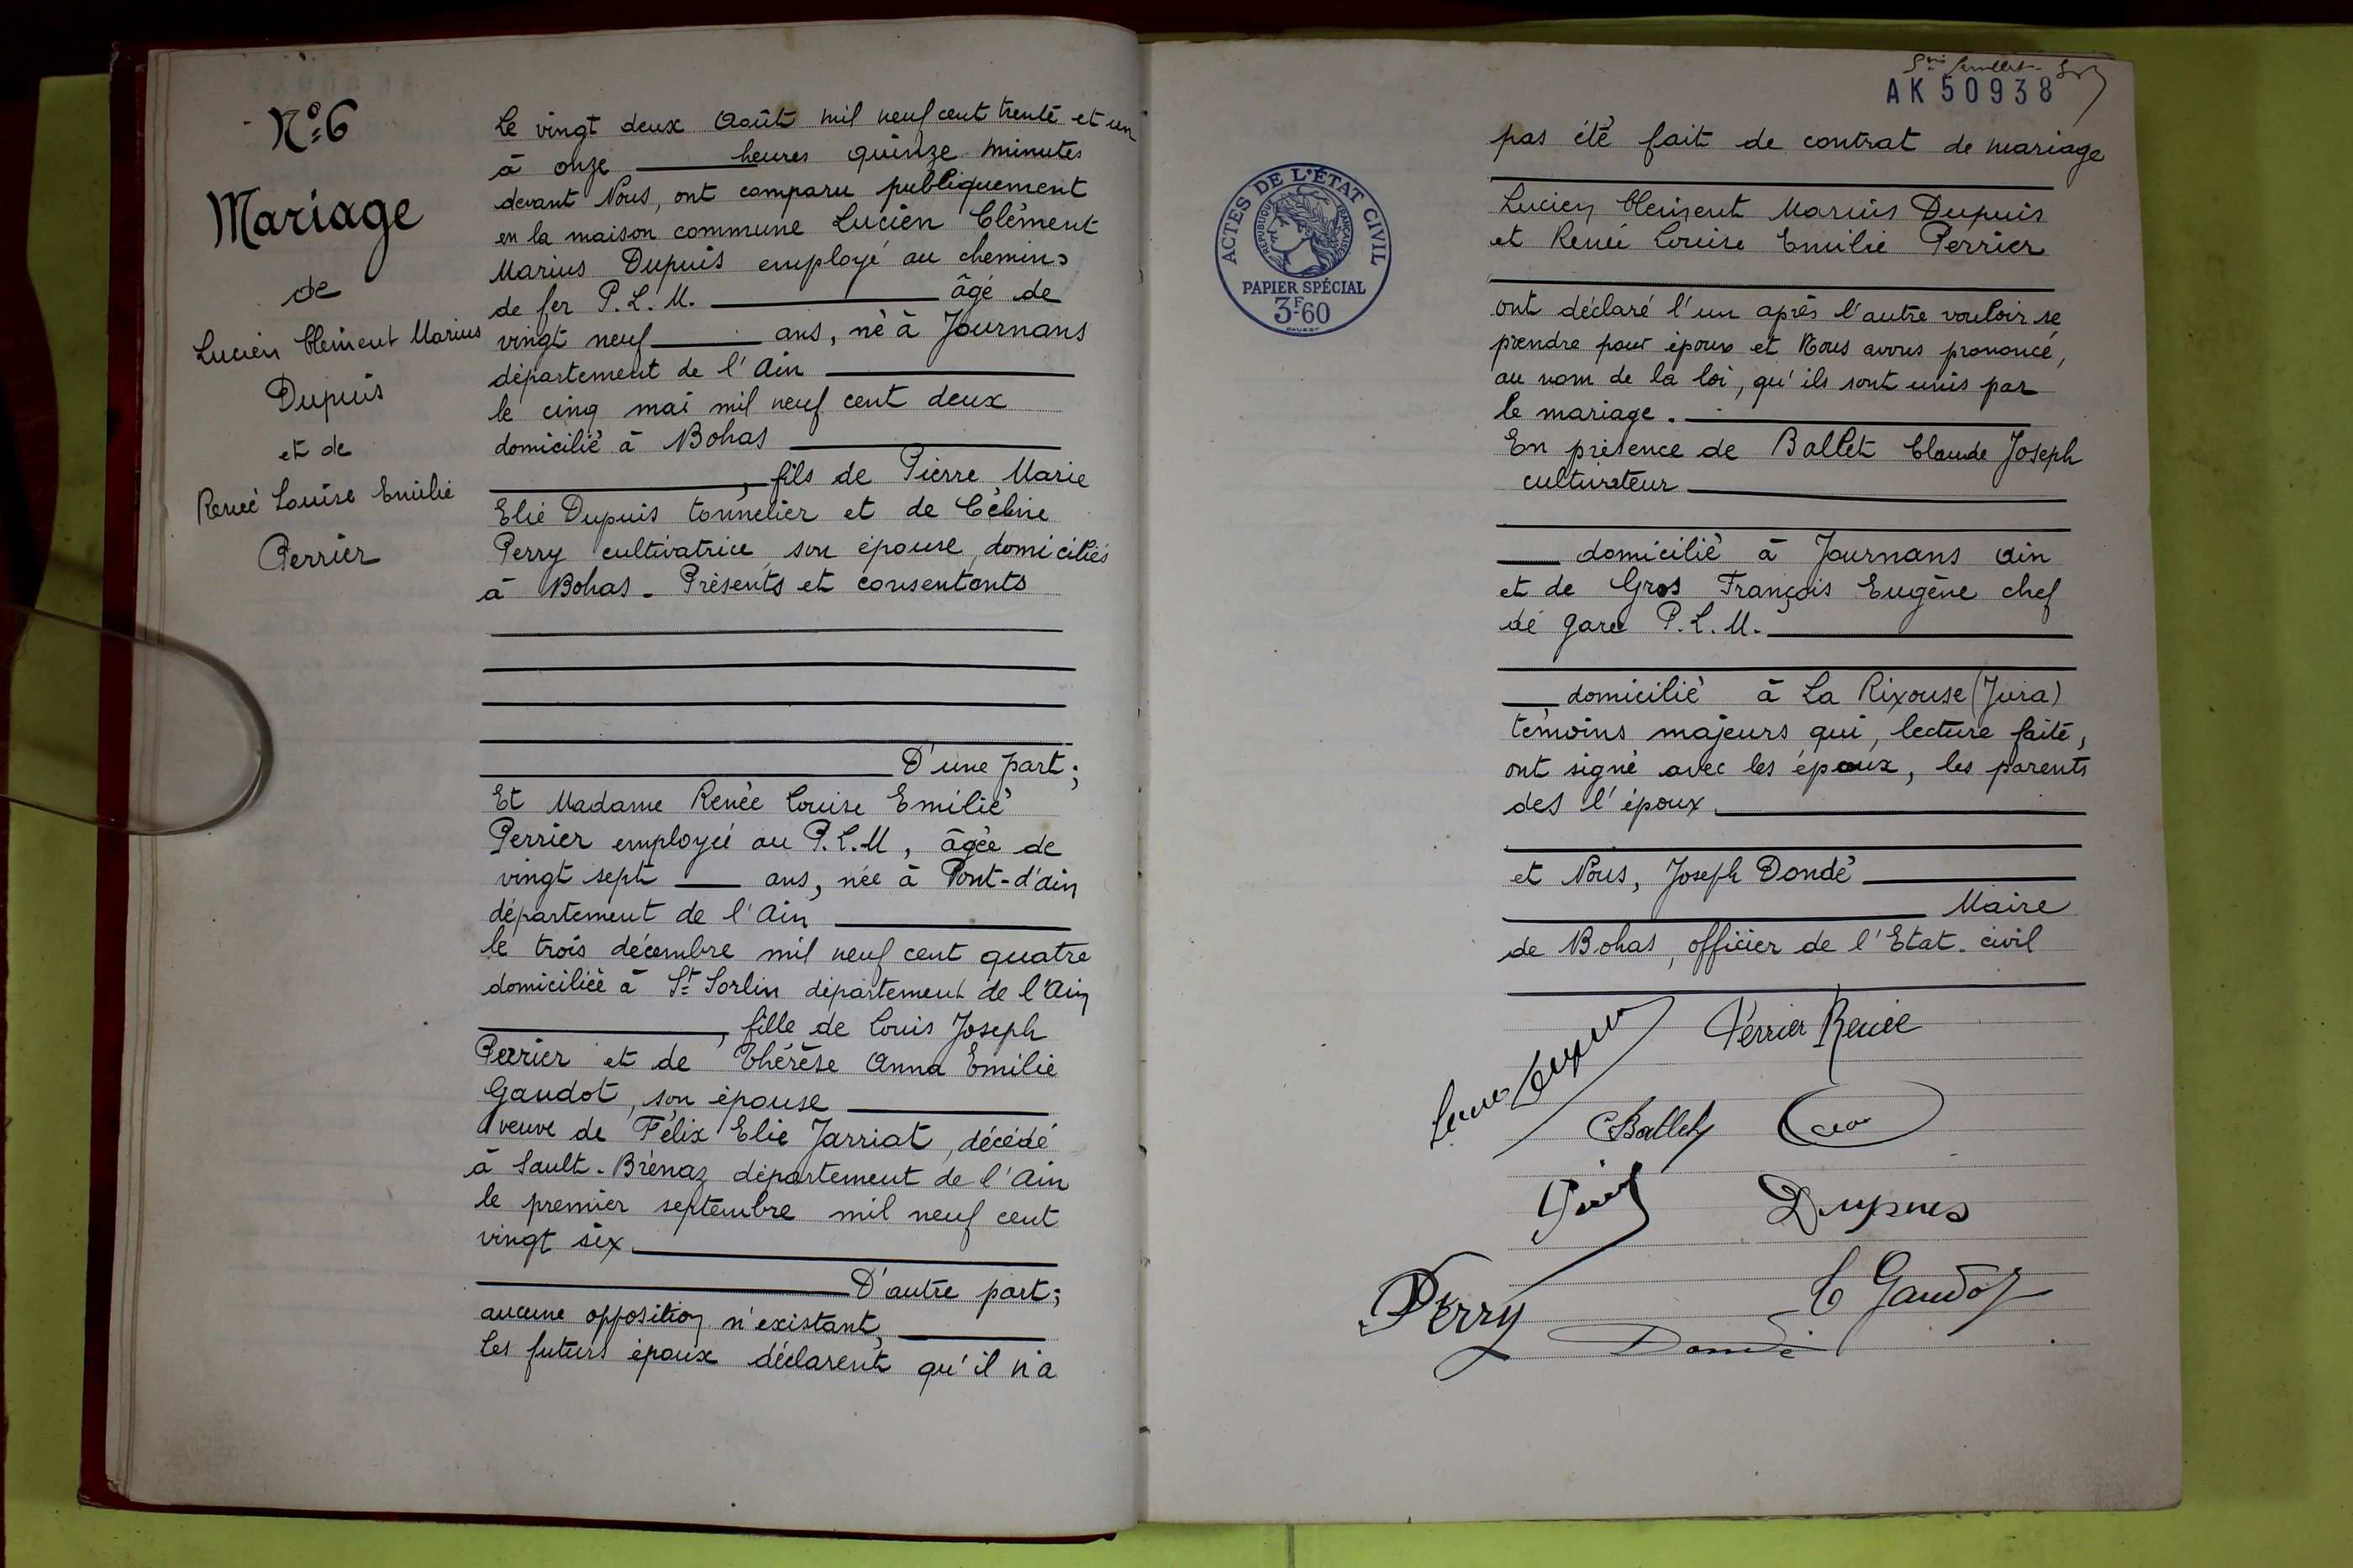 N° 6
Mariage
de
Lucien Clément Marius
Dupuis
et de
Renée Louise Emilie
Perrier
Le vingt deux Août mil neuf cent trente et un
à onze heures quinze minutes
devant Nous, ont comparu publiquement
en la maison commune Lucien Clément
Marius Dupuis employé au chemins
de fer P.L.M. âgé de
vingt neuf ans, né à Journans
département de l'Ain
le cinq mai mil neuf cent deux
domicilié à Bohas
, fils de Pierre Marie
Elie Dupuis tonnelier et de Céline
Perry cultivatrice son épouse, domiciliés
à Bohas - Présents et consentants
D'une part;
Et Madame Renée Louise Emilie
Perrier employée au P.L.M, âgée de
vingt sept ans, née à Pont-d'ain
département de l'Ain
le trois décembre mil neuf cent quatre
domiciliée à St Sorlin département de l'Ain
, fille de Louis Joseph
Perrier et de Thérèse Anna Emilie
Gaudot, son épouse
veuve de Félix Elie Jarriat, décédé
à Sault-Brénaz département de l'Ain
le premier septembre mil neuf cent
vingt six.
D'autre part;
aucune opposition n'existant,
Les futurs époux déclarent qu'il n'a
AK 50938
ACTES DE L'ÉTAT CIVIL
RÉPUBLIQUE FRANÇAISE
PAPIER SPÉCIAL
3F60
pas été fait de contrat de mariage
Lucien Clément Marius Dupuis
et Renée Louise Emilie Perrier
ont déclaré l'un après l'autre vouloir se
prendre pour époux et Nous avons prononcé,
au nom de la loi, qu'ils sont unis par
le mariage.
En présence de Ballet Claude Joseph
cultivateur
domicilié à Journans ain
et de Gros François Eugène chef
de gare P.L.M.
domicilié à La Rixouse (Jura)
témoins majeurs qui, lecture faite,
ont signé avec les époux, les parents
des l'époux
et Nous, Joseph Dondé
Maire
de Bohas, officier de l'Etat-civil
Perrier Renée
Ballet
Dupuis
Perry
C Gaudot
Dondé